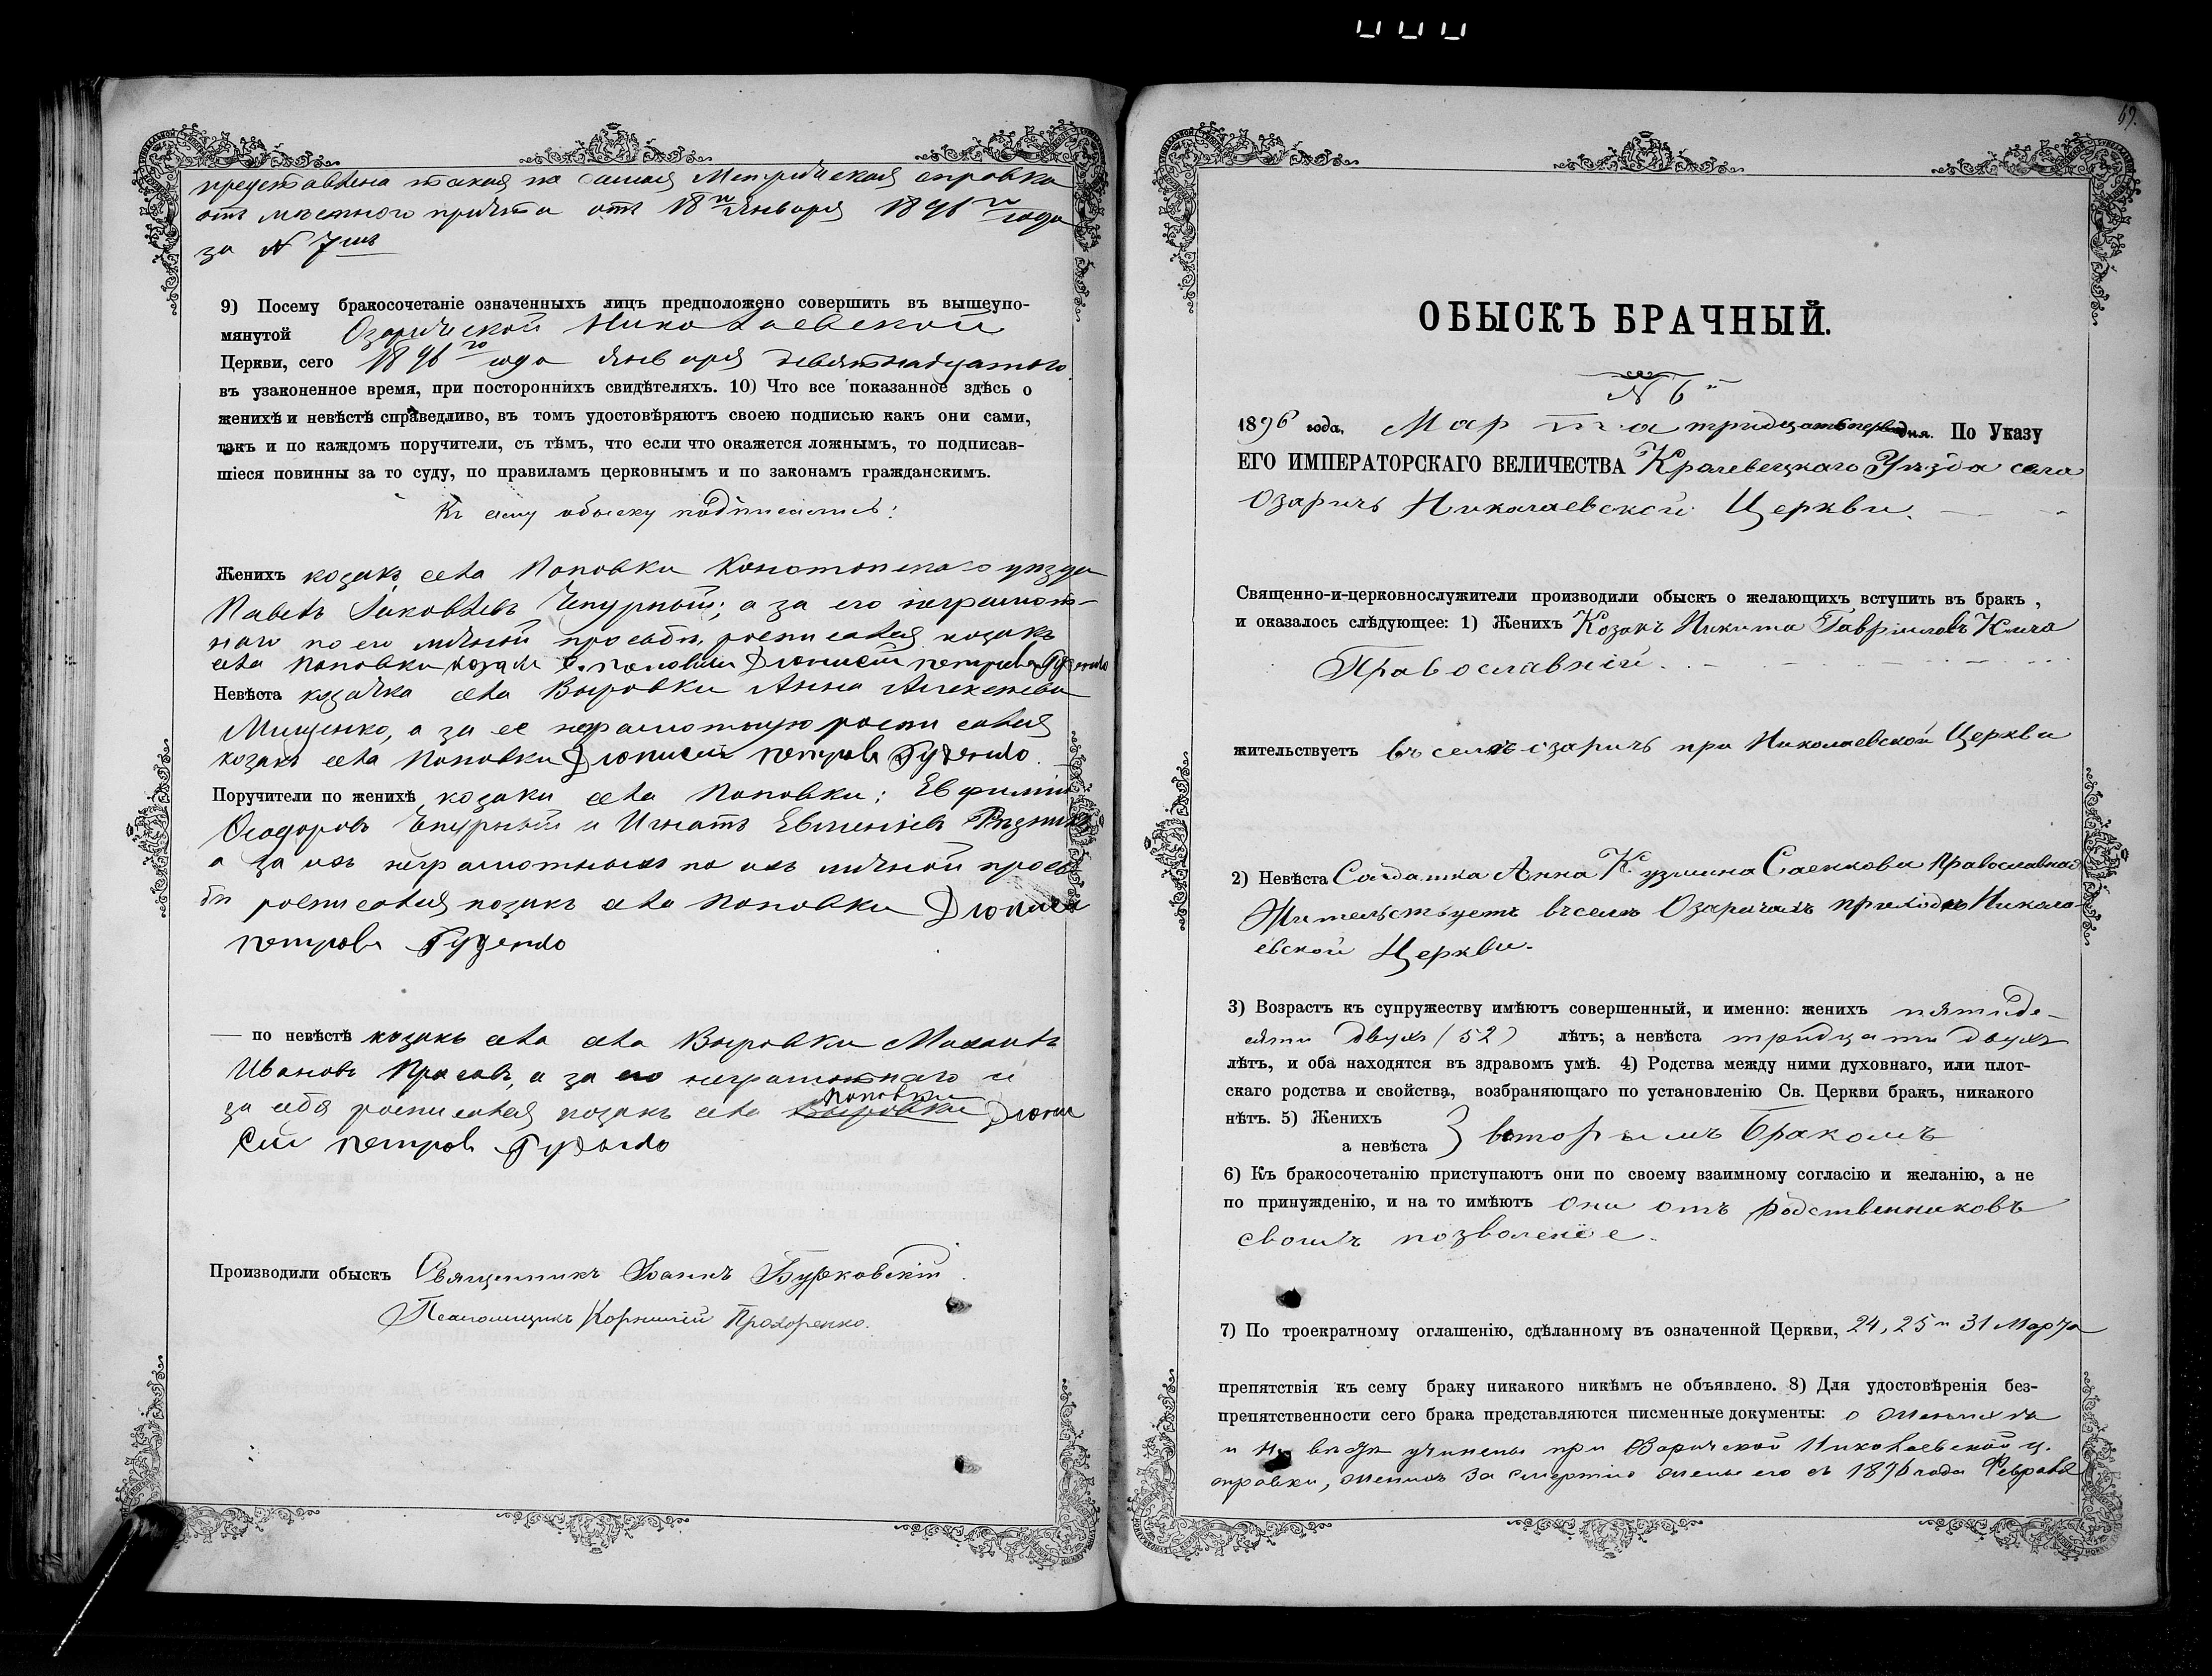 представлена такая же самая Метрическая справка
отъ мѣстного причта отъ 18го Января 1896го года
за N 7мъ
9) Посему бракосочетаніе означенныхъ лицъ предположено совершить въ вышеупо-
мянутой Озарической Николаевской
Церкви, сего 1896го года января девятнадцатого
въ узаконенное время, при постороннихъ свидѣтеляхъ. 10) Что все показанное здѣсь о
женихѣ и невѣстѣ справедливо, въ томъ удостовѣряютъ своею подписью какъ они сами,
такъ и по каждомъ поручители, съ тѣмъ, что если что окажется ложнымъ, то подписав-
шіеся повинны за то суду, по правиламъ церковнымъ и по законамъ гражданскимъ.
Къ сему обыску подписались:
Женихъ козакъ села Поповки Конотопскаго уѣзда
Павелъ Іаковлевъ Чепурный; а за его неграмот-
наго по его личной просьбѣ росписался козакъ
села Поповки козакъ с. поповки Дионисій петровъ
Невѣста козачка села Выровки Анна Алексѣева
Мищенко, а за ее неграмотную росписался
козакъ села Поповки Дионисій петровъ
Поручители по женихѣ козаки села Поповки: Евфимій
Ѳеодоровъ Чепурный и Игнатъ Евменіевъ Рѣзникъ
а за ихъ неграмотныхъ по ихъ личной прось
бѣ росписался козакъ села Поповки Дионисій
петровъ
— по невѣстѣ козакъ села села Выровки Михаилъ
Ивановъ а за его неграмотнаго и
за себя росписался козакъ села Выровки Поповки Диони
сій петровъ
Производили обыскъ Священникъ Іоаннъ Бужковскій
Псаломщикъ Корнилій Прохоренко.
69.
ОБЫСКЪ БРАЧНЫЙ.
N 6й
1896 года, Марта тридцать перваго дня. По Указу
ЕГО ИМПЕРАТОРСКАГО ВЕЛИЧЕСТВА Кролевецкаго Уѣзда села
Озаричъ Николаевской Церкви.
Священно-и-церковнослужители производили обыскъ о желающихъ вступить въ бракъ ,
и оказалось слѣдующее: 1) Женихъ Козакъ Никита Гавриловъ
Православній
жительствуетъ въ селѣ озаричъ при Николаевской Церкви
2) Невѣста Солдатка Анна Кузмина Саенкова Православная
Жительствуетъ въ селѣ Озаричахъ приходѣ Никола-
евской Церкви.
3) Возрастъ къ супружеству имѣютъ совершенный, и именно: женихъ пятиде-
сяти двухъ (52) лѣтъ; а невѣста тридцати двухъ
лѣтъ, и оба находятся въ здравомъ умѣ. 4) Родства между ними духовнаго, или плот-
скаго родства и свойства, возбраняющаго по установленію Св. Церкви бракъ, никакого
нѣтъ. 5) Женихъ
а невѣста } вторымъ бракомъ
6) Къ бракосочетанію приступаютъ они по своему взаимному согласію и желанію, а не
по принужденію, и на то имѣютъ они отъ родственниковъ
своихъ позволеніе.
7) По троекратному оглашенію, сдѣланному въ означенной Церкви, 24, 25 и 31 Марта
препятствія къ сему браку никакого никѣмъ не объявлено. 8) Для удостовѣренія без-
препятственности сего брака представляются писменные документы: о женихѣ
и невѣстѣ учинены при Озаричской Николаевской ц.
справки, женихъ за смертію жены его съ 1896 года Февраля